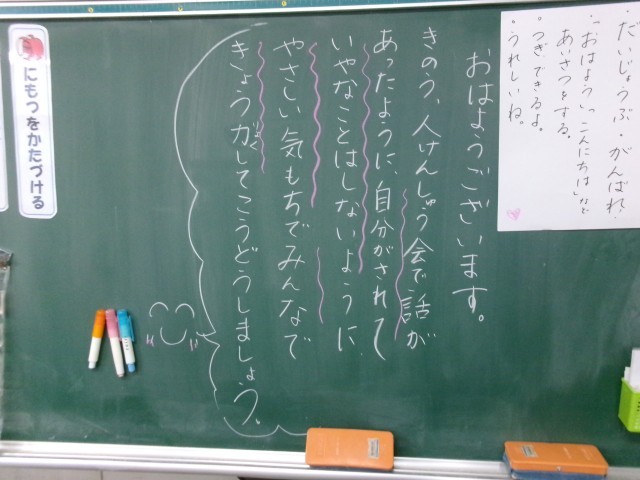 ・だいじょうぶ・がんばれ!
・「おはよう」、「こんにちは」など
あいさつをする。
・つぎ、できるよ。
・うれしいね。
おはようございます。
きのう、人けんしゅう会で話が
あったように、自分がされて
いやなことはしないように
やさしい気もちでみんなで
きょう力してこうどうしましょう。
にもつをかたづける